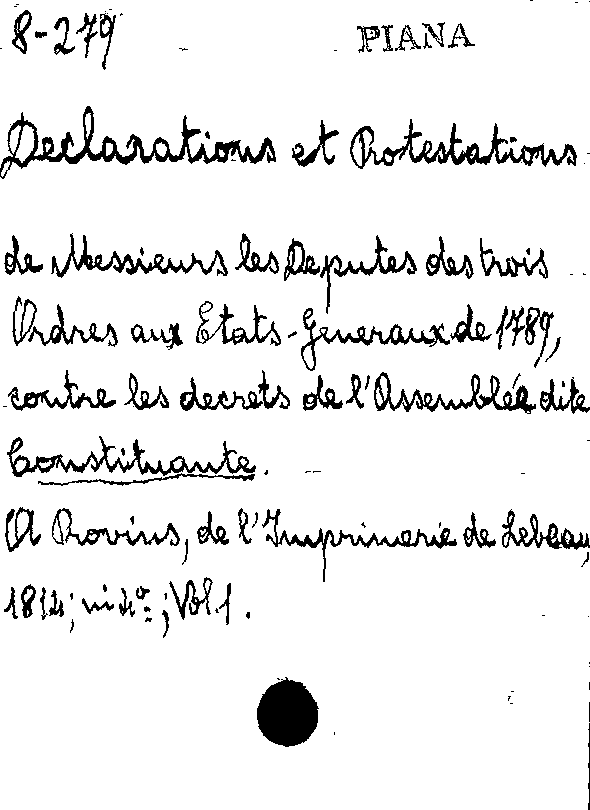 8-279 PIANA
Declarations et Protestations
de Messieurs les Deputes des trois
Ordres aux Etats-Generaux de 1789,
contre les decrets de l'Assemblée dite
Constituante.
A Provins, de l'Imprimerie de Lebeau,
1814; in 4º; Vol 1.